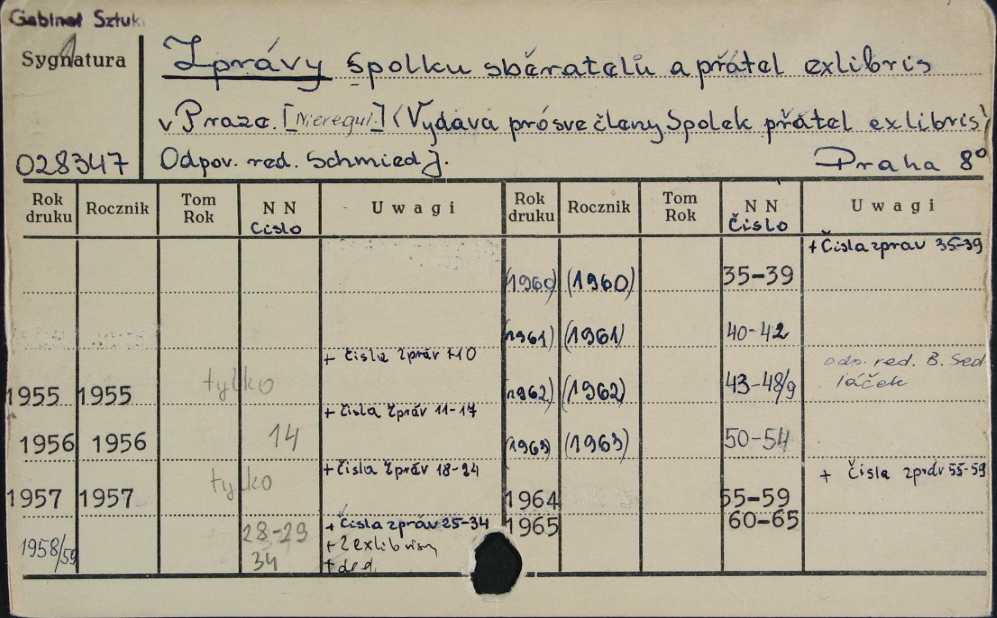 Gabinet Sztuki
Sygnatura
Zprávy Spolku sběratelů a přátel exlibris
v Praze. [Nieregul.] (Vydává pro své členy Spolek přátel exlibris)
028347 Odpov. red. Schmied J. Praha 8°
Rok druku Rocznik Tom Rok NN Čislo Uwagi Rok druku Rocznik Tom Rok NN Čislo Uwagi
+ Čisla zprav 35-39
(1960) (1960) 35-39
(1961) (1961) 40-42
+ čisla zpráv 1-10
odp. red. B. Sed
láček
1955 1955 tylko (1962) (1962) 43-48/9
+ čisla zpráv 11-17
1956 1956 14 (1963) (1963) 50-54
+ čisla zpráv 18-24 + čisla zpráv 55-59
1957 1957 tylko 1964 55-59
28-29 + čisla zpráv 25-34 1965 60-65
1958/59 34 + 2 exlibrisy
+ ded.